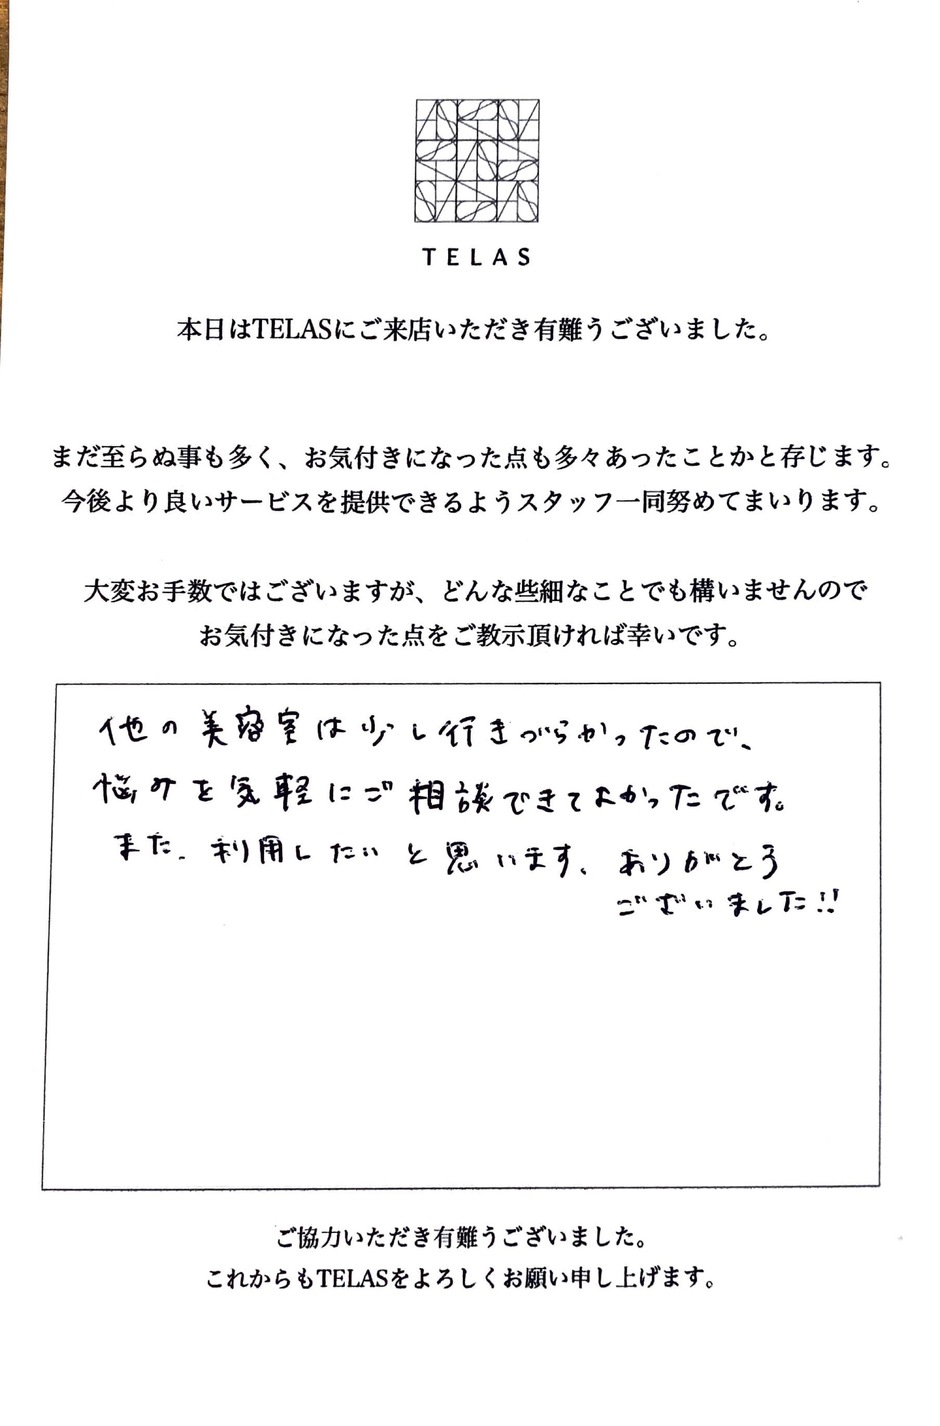 TELAS
本日はTELASにご来店いただき有難うございました。
まだ至らぬ事も多く、お気付きになった点も多々あったことかと存じます。
今後より良いサービスを提供できるようスタッフ一同努めてまいります。
大変お手数ではございますが、どんな些細なことでも構いませんので
お気付きになった点をご教示頂ければ幸いです。
他の美容室は少し行きづらかったので、
悩みを気軽にご相談できてよかったです。
また、利用したいと思います。ありがとう
ございました!!
ご協力いただき有難うございました。
これからもTELASをよろしくお願い申し上げます。